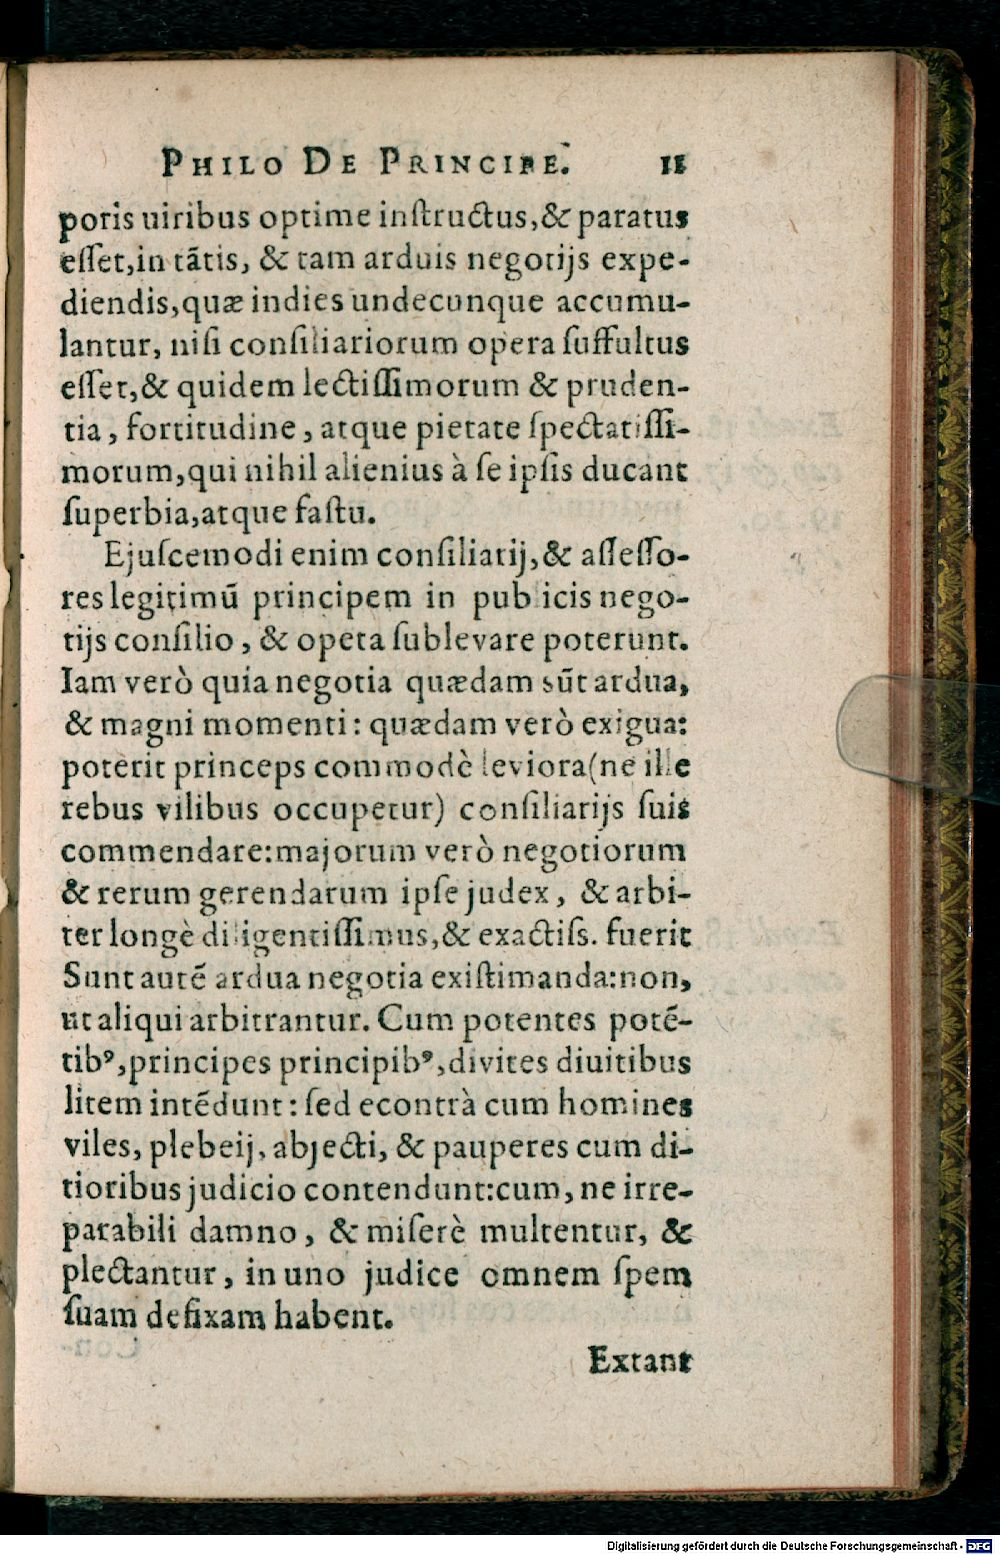 PHILO DE PRINCIPE. 11
poris uiribus optime instructus,& paratus
esset,in tãtis, & tam arduis negotijs expe-
diendis,quæ indies undecunque accumu-
lantur, nisi consiliariorum opera suffultus
esset,& quidem lectissimorum & pruden-
tia, fortitudine, atque pietate spectatissi-
morum,qui nihil alienius à se ipsis ducant
superbia,atque fastu.
Ejuscemodi enim consiliarij,& assesso-
res legitimũ principem in publicis nego-
tijs consilio, & opera sublevare poterunt.
Iam verò quia negotia quædam sũt ardua,
& magni momenti: quædam verò exigua:
poterit princeps commodè leviora(ne ille
rebus vilibus occupetur) consiliarijs suis
commendare:majorum verò negotiorum
& rerum gerendarum ipse judex, & arbi-
ter longè diligentissimus,& exactiss. fuerit
Sunt autẽ ardua negotia existimanda:non,
ut aliqui arbitrantur. Cum potentes potẽ-
tibꝰ,principes principibꝰ,divites diuitibus
litem intẽdunt: sed econtrà cum homines
viles, plebeij, abjecti, & pauperes cum di-
tioribus judicio contendunt:cum, ne irre-
parabili damno, & miserè multentur, &
plectantur, in uno judice omnem spem
suam defixam habent.
Extant
Digitalisierung gefördert durch die Deutsche Forschungsgemeinschaft - DFG